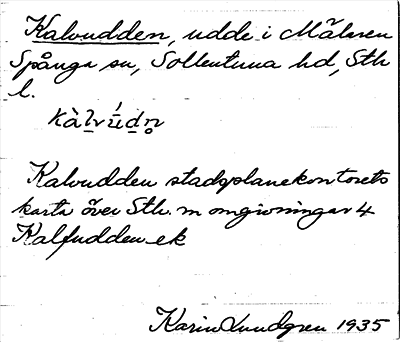 Kalvudden, udde i Mälaren
Spånga sn, Sollentuna hd, Sth
l.
kàlvúdn̥
Kalvudden stadsplanekontorets
karta över Sth. m omgivningar 4
Kalfudden ek
Karin Lundgren 1935